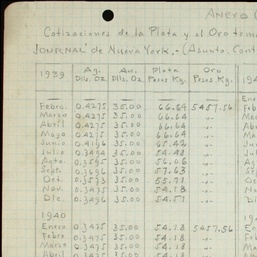 ANEXO
Cotizaciones de la Plata y el Oro tom
JOURNAL" de Nueva York.- (Asunto. Cont
1939 Ag. Dls. Oz Au. Dls. Oz. Plata Pesos Kg. Oro Pesos Kg. 194
Febro. 0.4275 35.00 66.64 5457.56
Marzo 0.4275 35.00 66.64 "
Abril 0.4275 35.00 66.64 "
Mayo 0.4275 35.00 66.64 "
Junio 35.00 65.42 "
Julio 35.00 "
Agto. 35.00 "
Sept. 35.00 57.63 "
Oct. 35.00 55.71 "
Nov. 0.3475 35.00 54.18 "
Dic. 0.3496 35.00 54.51 "
1940
Enero 0.3475 35.00 54.18 5457.56
Febro. 0.3475 35.00 54.18 "
Marzo 0.3475 35.00 54.18 "
Abril 0.3475 35.00 54.18 "